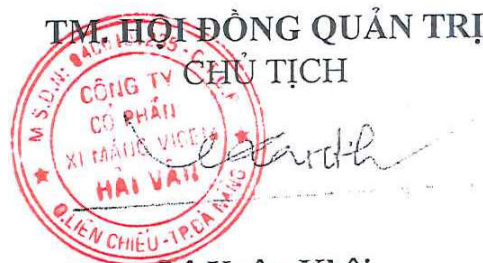 TM. HỘI ĐỒNG QUẢN TRỊ
CHỦ TỊCH
M.S.D.N:
CÔNG TY
CỔ PHẦN
XI MĂNG VICEM
HẢI VÂN
Q.LIÊN CHIỂU-TP.ĐÀ NẴNG